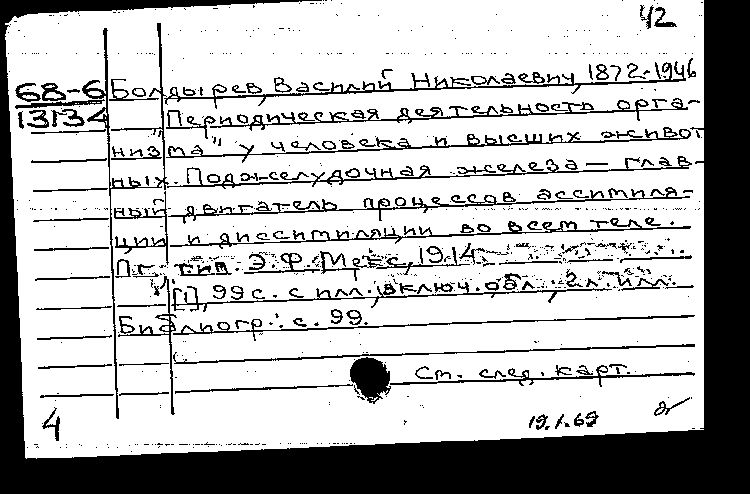 42
68-6 Болдырев, Василий Николаевич, 1872-1946
13134 "Периодическая деятельность орга-
низма" у человека и высших живот
ных. Поджелудочная железа — глав-
ный двигатель процессов ассимиля-
ции и диссимиляции во всем теле.
Пг. тип. Э.Ф. Мекс, 1914.
[1], 99 с. с илл., включ. обл., 2 л. илл.
Библиогр.: с. 99.
См. след. карт.
4
19.1.69